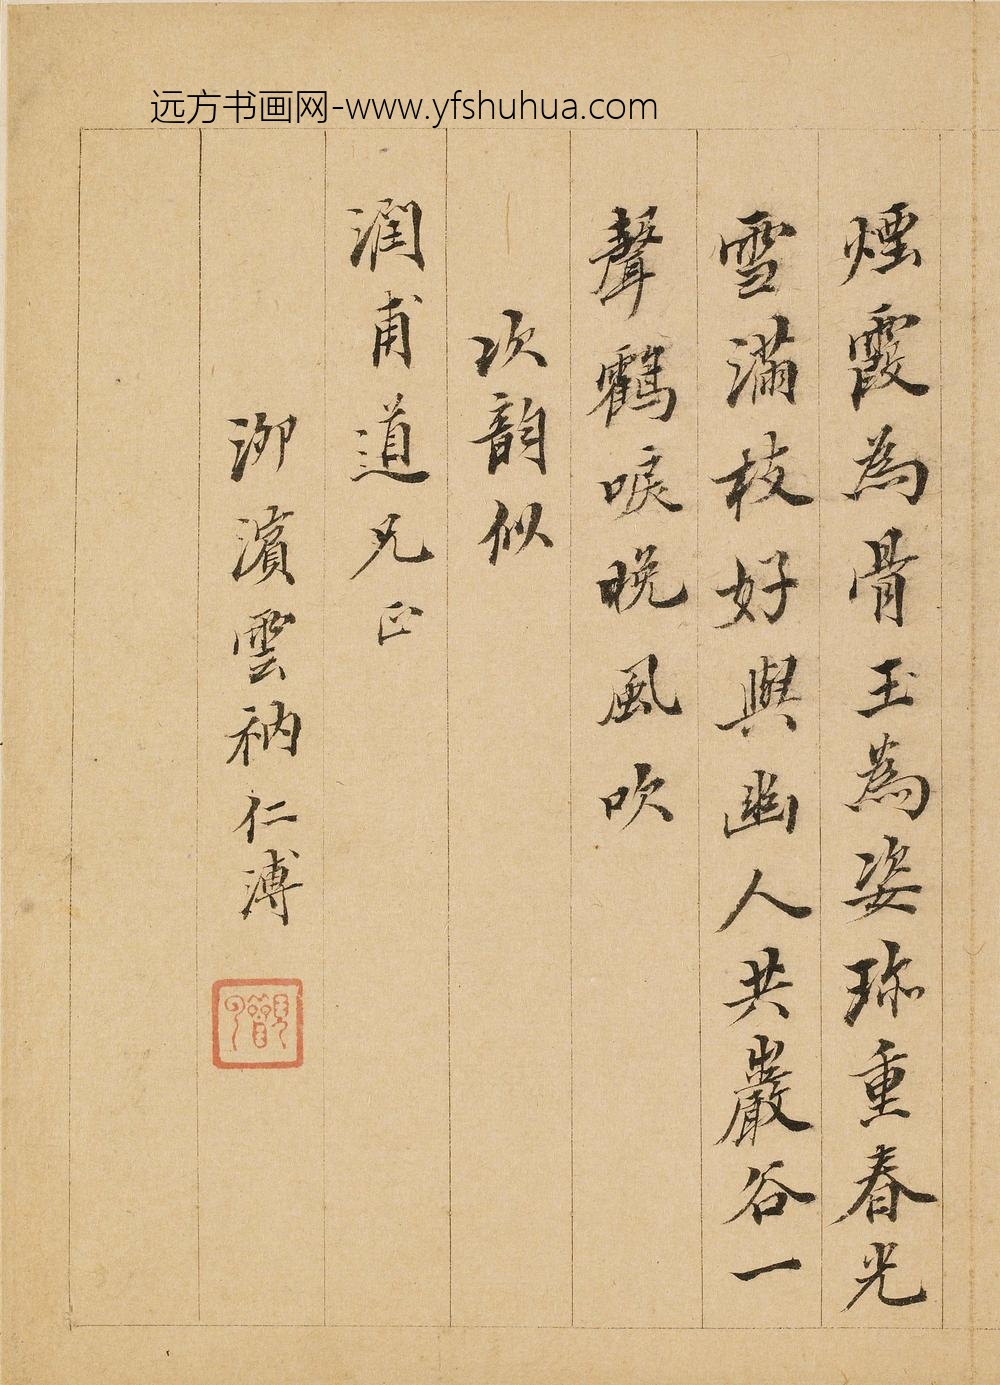 远方书画网-www.yfshuhua.com
煙霞為骨玉為姿珎重春光
雪滿枝好與幽人共巖谷一
聲鶴唳晚風吹
次韵似
潤甫道兄正
泖濱雲衲仁溥